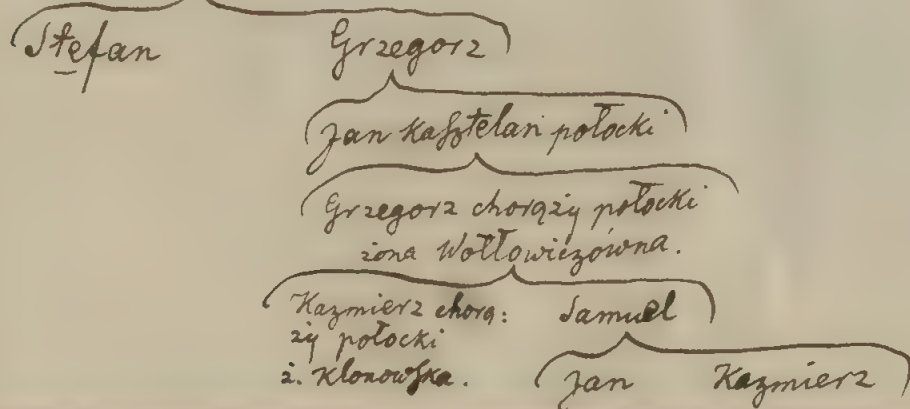 Stefan Grzegorz
Jan Kasztelan połocki
Grzegorz chorąży połocki
żona Wołłowiczówna.
Kazmierz chorą: Samuel
ży połocki
ż. Klonowska. Jan Kazmierz